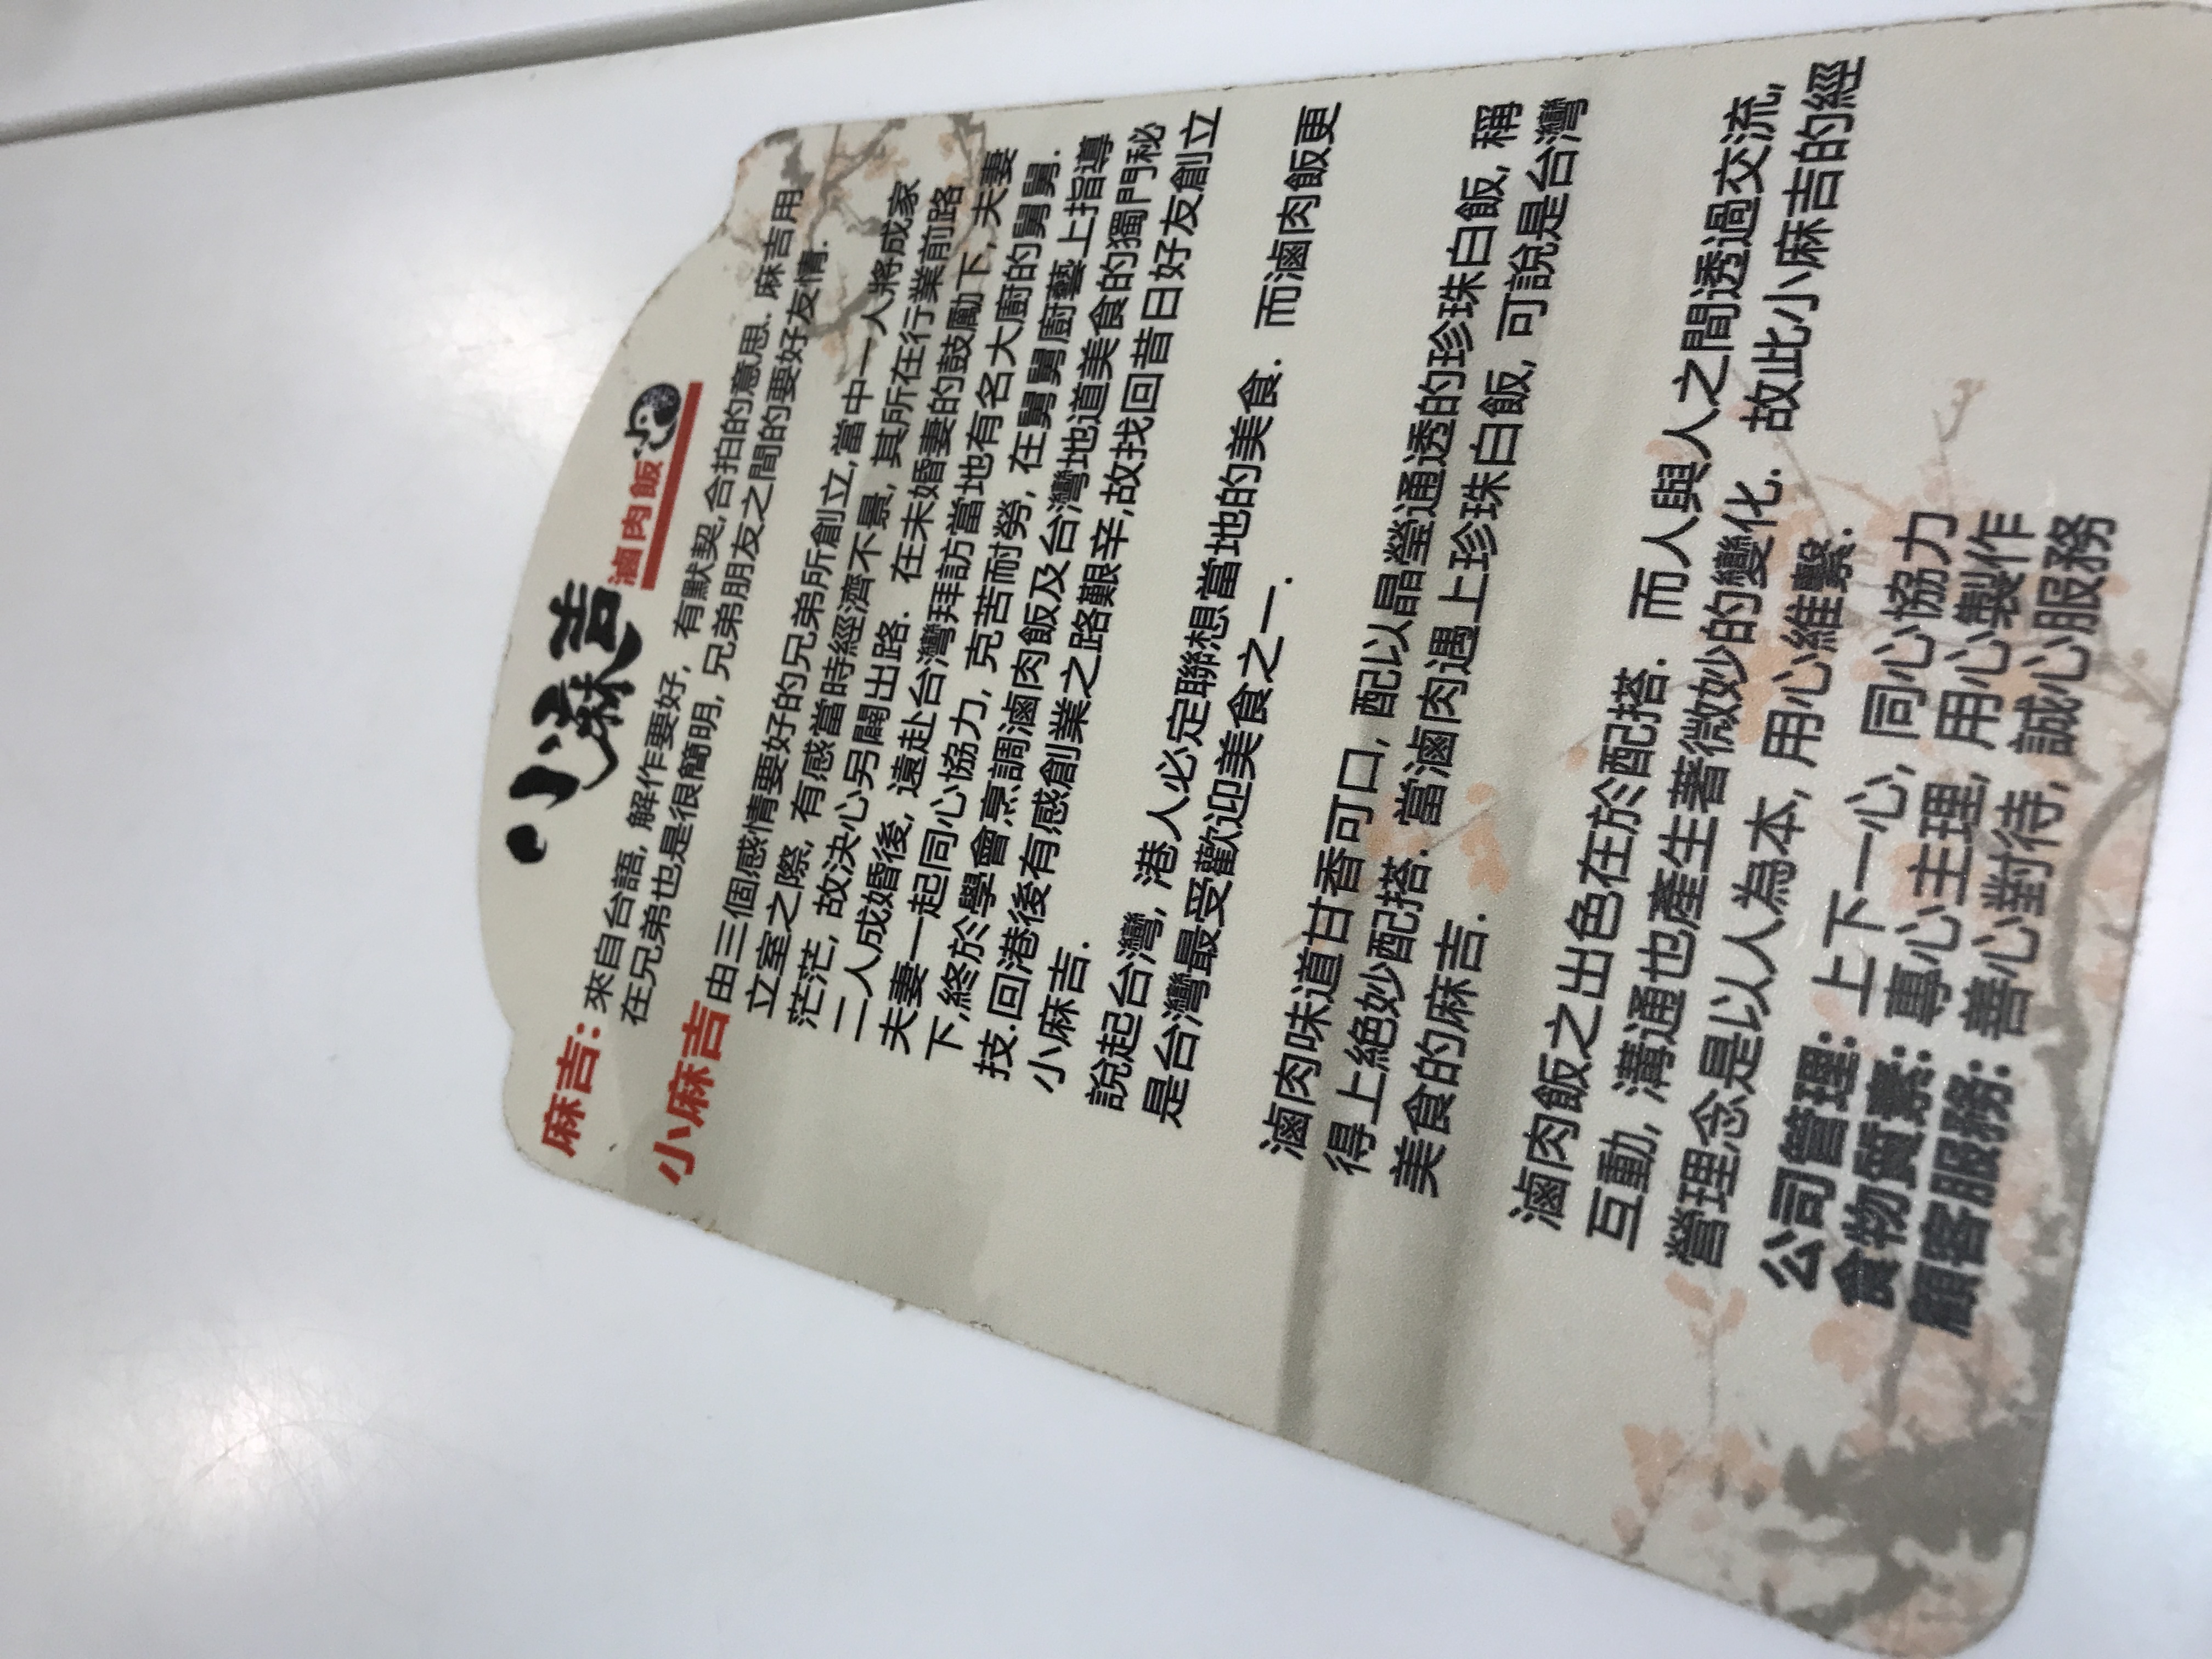 小麻吉
滷肉飯
麻吉: 來自台語, 解作要好, 有默契,合拍的意思. 麻吉用
在兄弟也是很簡明, 兄弟朋友之間的要好友情.
小麻吉 由三個感情要好的兄弟所創立,當中一人將成家
立室之際, 有感當時經濟不景, 其所在行業前路
茫茫, 故決心另闢出路. 在未婚妻的鼓勵下, 夫妻
二人成婚後, 遠赴台灣拜訪當地有名大廚的舅舅.
夫妻一起同心協力, 克苦而耐勞, 在舅舅廚藝上指導
下,終於學會烹調滷肉飯及台灣地道美食的獨門秘
技.回港後有感創業之路艱辛,故找回昔日好友創立
小麻吉.
說起台灣, 港人必定聯想當地的美食. 而滷肉飯更
是台灣最受歡迎美食之一.
滷肉味道甘香可口, 配以晶瑩通透的珍珠白飯, 稱
得上絕妙配搭. 當滷肉遇上珍珠白飯, 可說是台灣
美食的麻吉.
滷肉飯之出色在於配搭. 而人與人之間透過交流,
互動, 溝通也產生著微妙的變化. 故此小麻吉的經
營理念是以人為本, 用心維繫.
公司管理: 上下一心, 同心協力
食物質素: 專心主理, 用心製作
顧客服務: 善心對待, 誠心服務